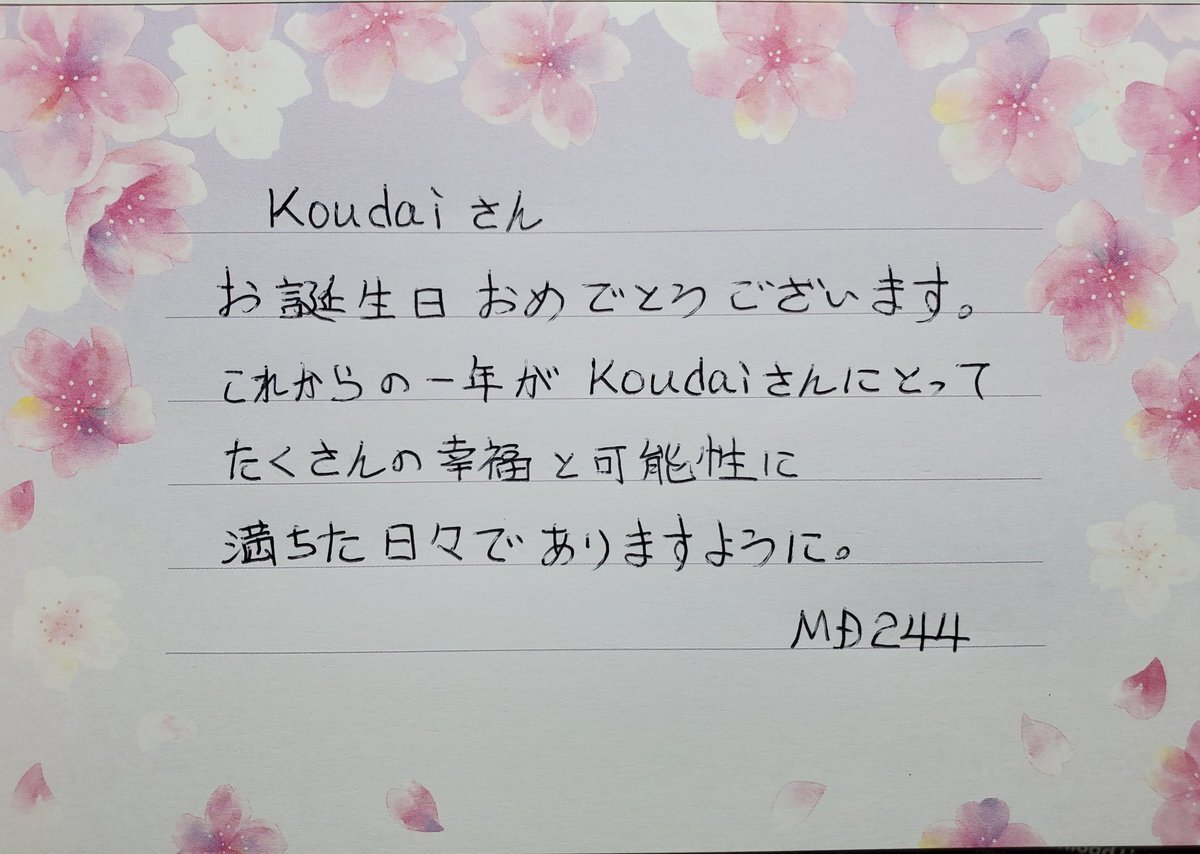 Koudaiさん
お誕生日おめでとうございます。
これからの一年がKoudaiさんにとって
たくさんの幸福と可能性に
満ちた日々でありますように。
MD244